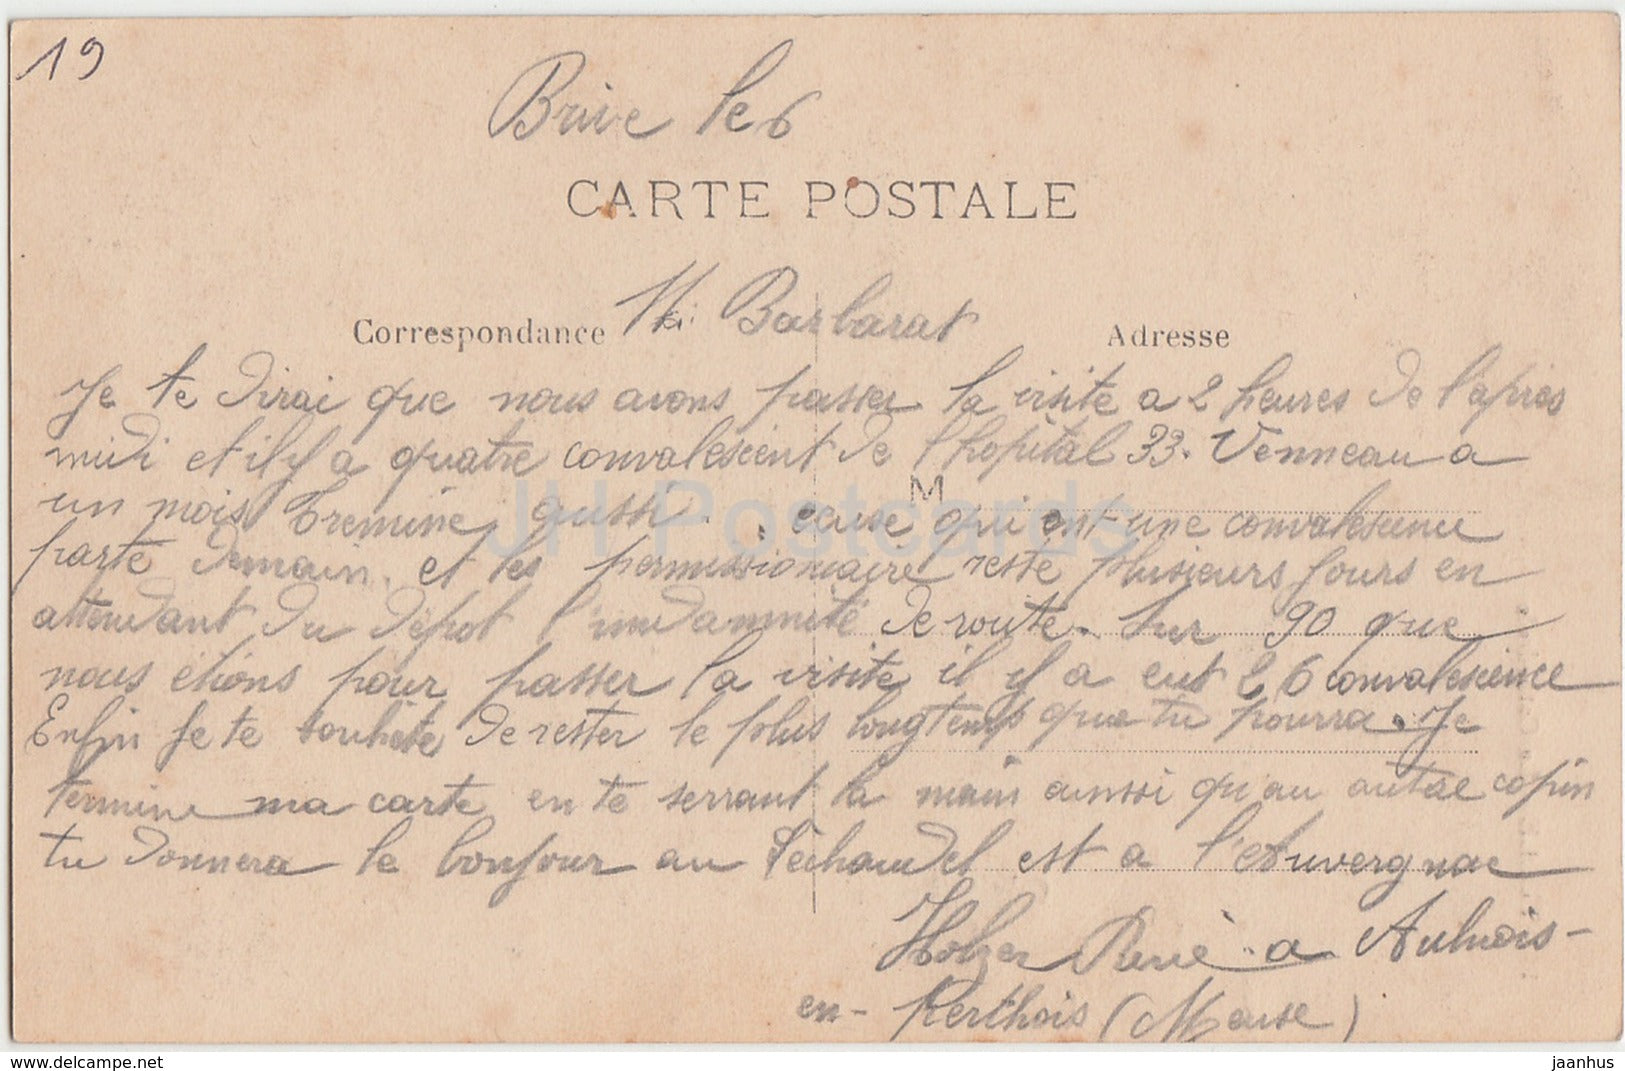 19
Brive le 6
CARTE POSTALE
Barbarat
Correspondance
Adresse
Je te dirai que nous avons passer la visite a 2 heures de l'apres
midi et il y a quatre convalescent de l'hopital 33. Venneau a
un mois aussi . . qui ont une convalescence
M
parte demain. et les permissionnaire reste plusieurs jours en
attendant du dépot l'indamnité de route. Sur 90 que
nous étions pour passer la visite il y a eut 26 convalescence
Enfin je te souhête de rester le plus longtemps que tu pourra. Je
termine ma carte en te serrant la main aussi qu'au autre copin
tu donnera le bonjour au est a l'Auvergnac
Holzer René a Aulnois-
en-Perthois (Meuse)
JH Postcards
https://www.delcampe.net
jaanhus